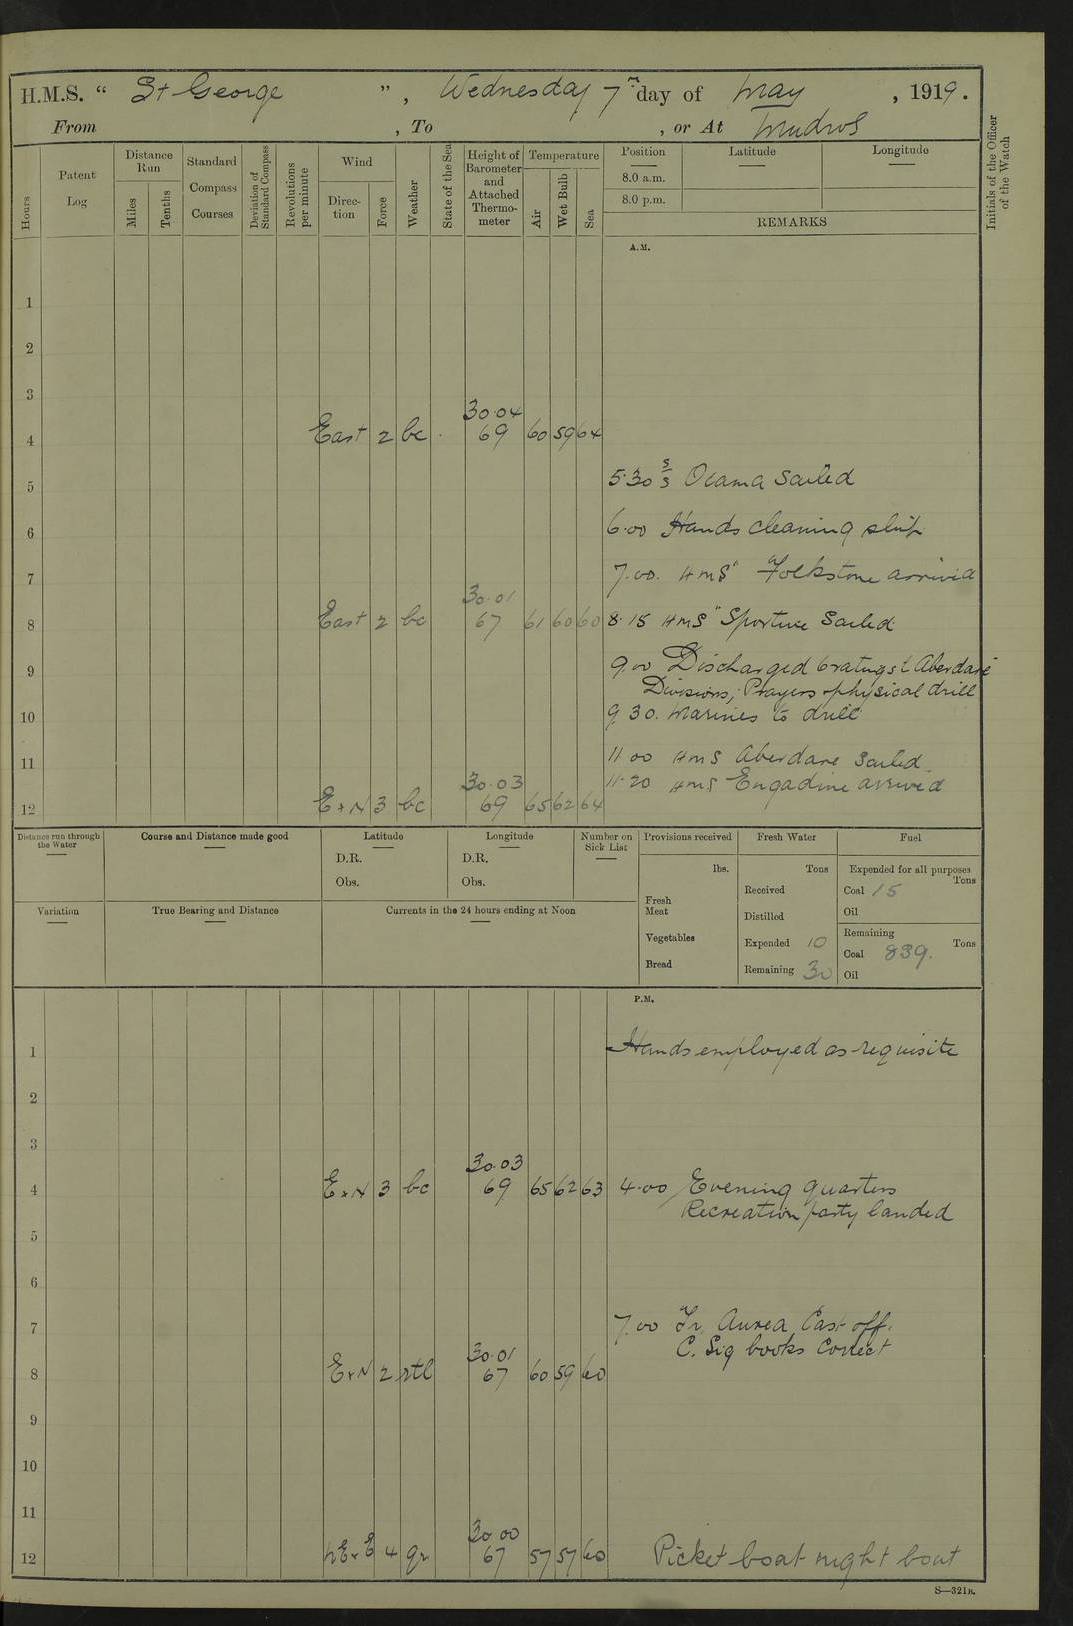 H.M.S. “ St George ” , Wednesday 7th day of May , 1919 .
From , To , or At Mudros
Hours
Patent Log
Distance Run
Miles
Tenths
Standard Compass Courses
Deviation of Standard Compass
Revolutions per minute
Wind
Direction
Force
Weather
State of the Sea
Height of Barometer and Attached Thermometer
Temperature
Air
Wet Bulb
Sea
Position
8.0 a.m.
8.0 p.m.
Latitude
Longitude
REMARKS
Initials of the Officer of the Watch
A.M.
1
2
3
30.04
4 East 2 bc 69 60 59 64
5 5.30 S/S Ocama sailed
6 6.00 Hands cleaning ship
7 7.00. HMS " Folkstone arrived
30.01
8 East 2 bc 67 61 60 60 8.15 HMS " Sportive Sailed
9 9.00 Discharged 6 ratings t Aberdare
Divisions, Prayers physical drill
10 9.30. Marines to drill
11 11.00 HMS Aberdare Sailed
30.03 11.20 HMS Engadine arrived
12 E x N 3 bc 69 65 62 64
Distance run through the Water
Course and Distance made good
Latitude
D.R.
Obs.
Longitude
D.R.
Obs.
Number on Sick List
Variation
True Bearing and Distance
Currents in the 24 hours ending at Noon
Provisions received
lbs.
Fresh Meat
Vegetables
Bread
Fresh Water
Tons
Received
Distilled
Expended 10
Remaining 30
Fuel
Expended for all purposes
Tons
Coal 15
Oil
Remaining
Tons
Coal 839.
Oil
P.M.
1 Hands employed as requisite
2
3
30.03
4 E x N 3 bc 69 65 62 63 4.00 Evening quarters
Recreation party landed
5
6
7 7.00 Tr. Aurea Cast off.
C. Sig books Correct
30.01
8 E x N 2 rtl 67 60 59 60
9
10
11
30.00
12 NE x E 4 qr 67 57 57 60 Picket boat night boat
S—321B.